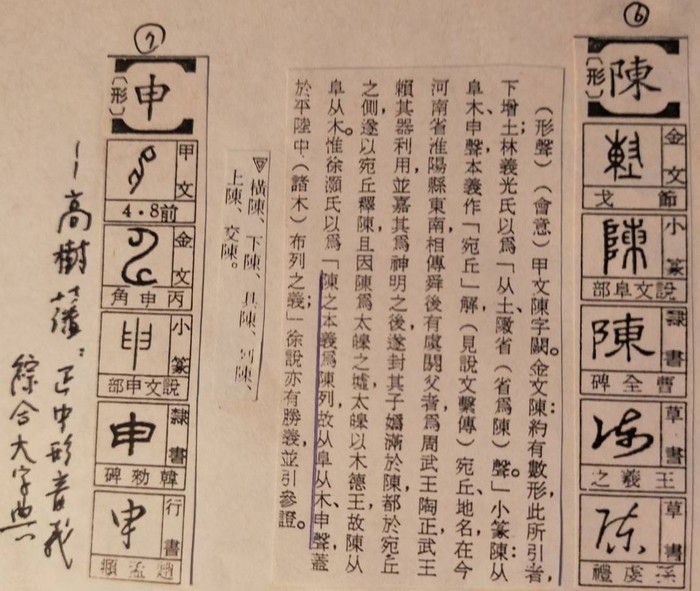 ⑥
〔形〕陳
金文
節戈
小篆
說文阜部
隸書
曹全碑
草書
王羲之
草書
（形聲）（會意）甲文陳字闕。金文陳約有數形此所引者，
下增土；林義光氏以爲：「从土敶省（省爲陳）聲。」小篆陳：从
阜、木、申聲，本義作「宛丘」解（見說文繫傳），宛丘地名在今
河南省淮陽縣東南，相傳舜後有虞閼父者，爲周武王陶正，武王
賴其器利用並嘉其爲神明之後，遂封其子嬀滿於陳，都於宛丘
之側，遂以宛丘釋陳；且因陳爲太皞之墟，太皞以木德王，故陳从
阜从木。惟徐灝氏以爲「陳之本義爲陳列，故从阜从木，申聲，蓋
於平陸中（諸木）布列之義」；徐說亦有勝義，並引參證。
橫陳、下陳、具陳、列陳、
上陳、交陳。
⑦
〔形〕申
甲文
前4.8
金文
丙申角
小篆
說文申部
隸書
韓勑碑
行書
趙孟頫
—高樹藩：正中形音義
綜合大字典